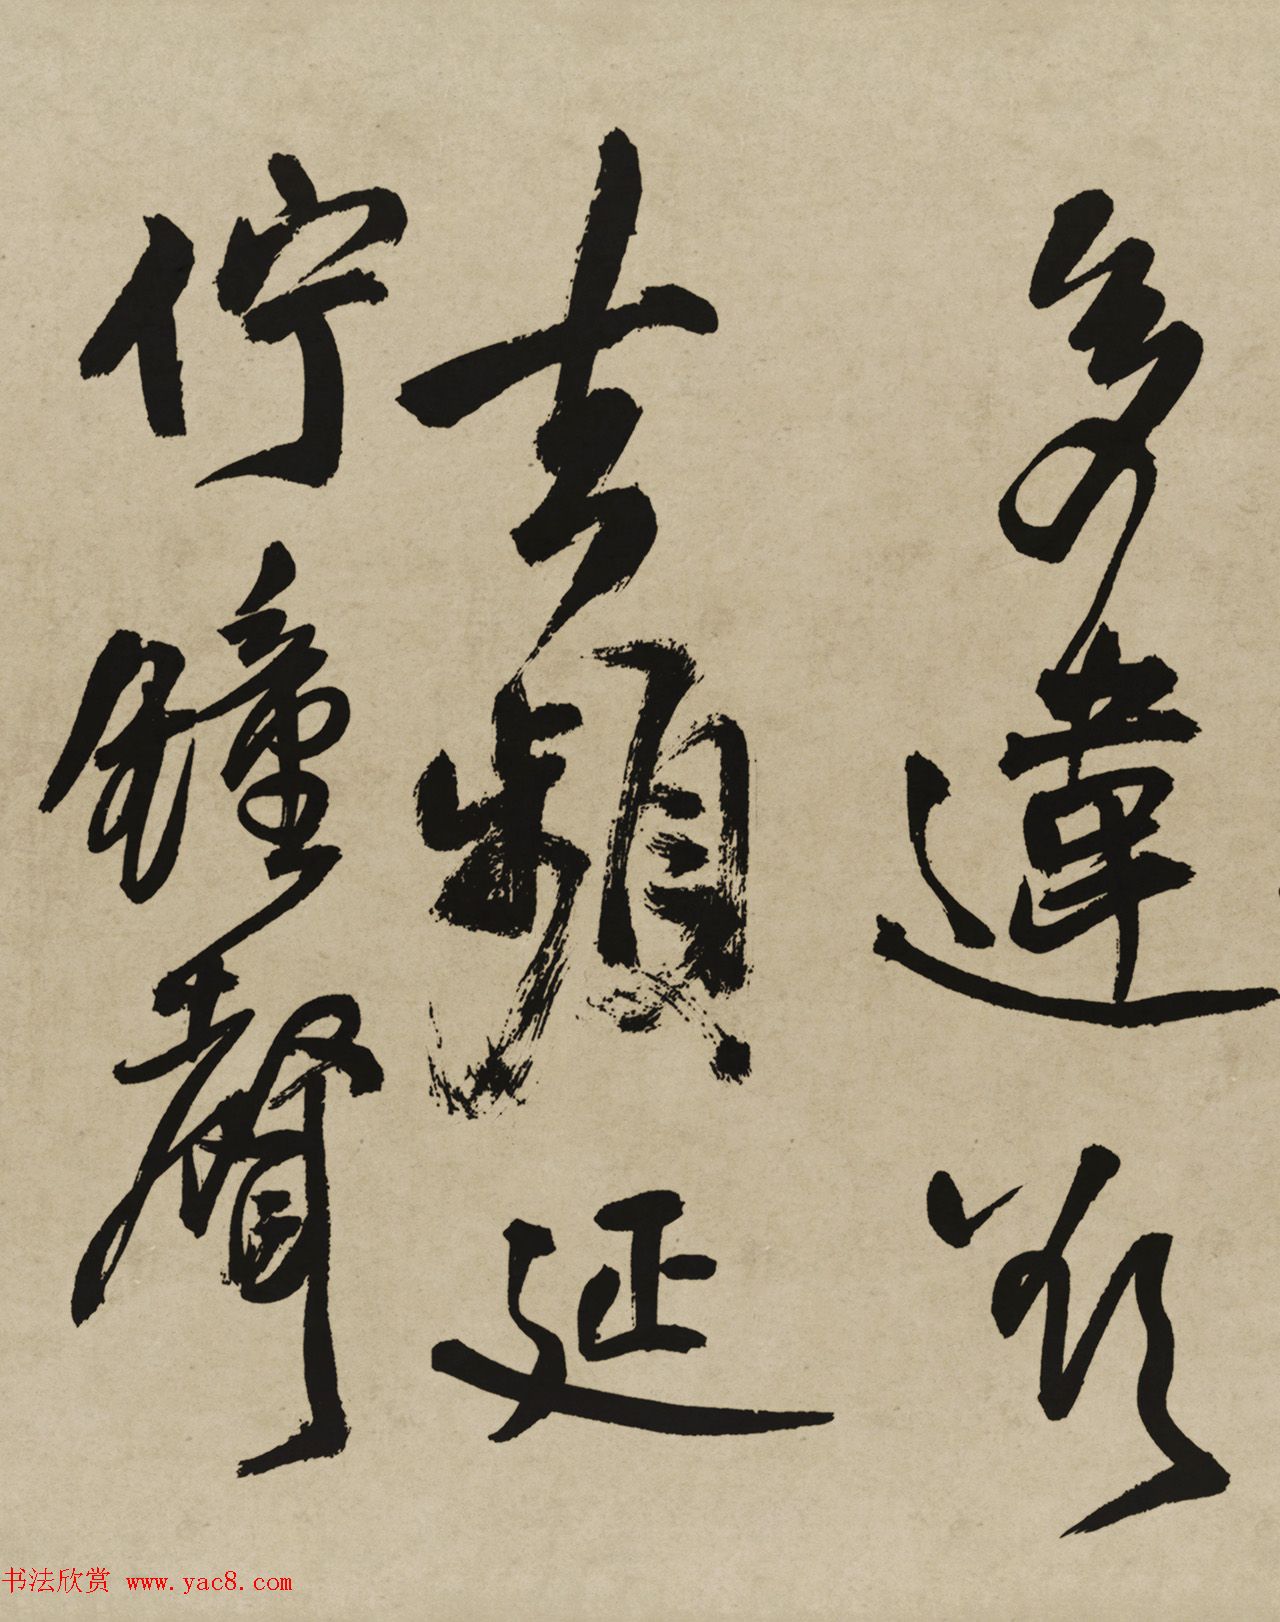 多違欲
去頻延
佇鐘聲
书法欣赏 www.yac8.com